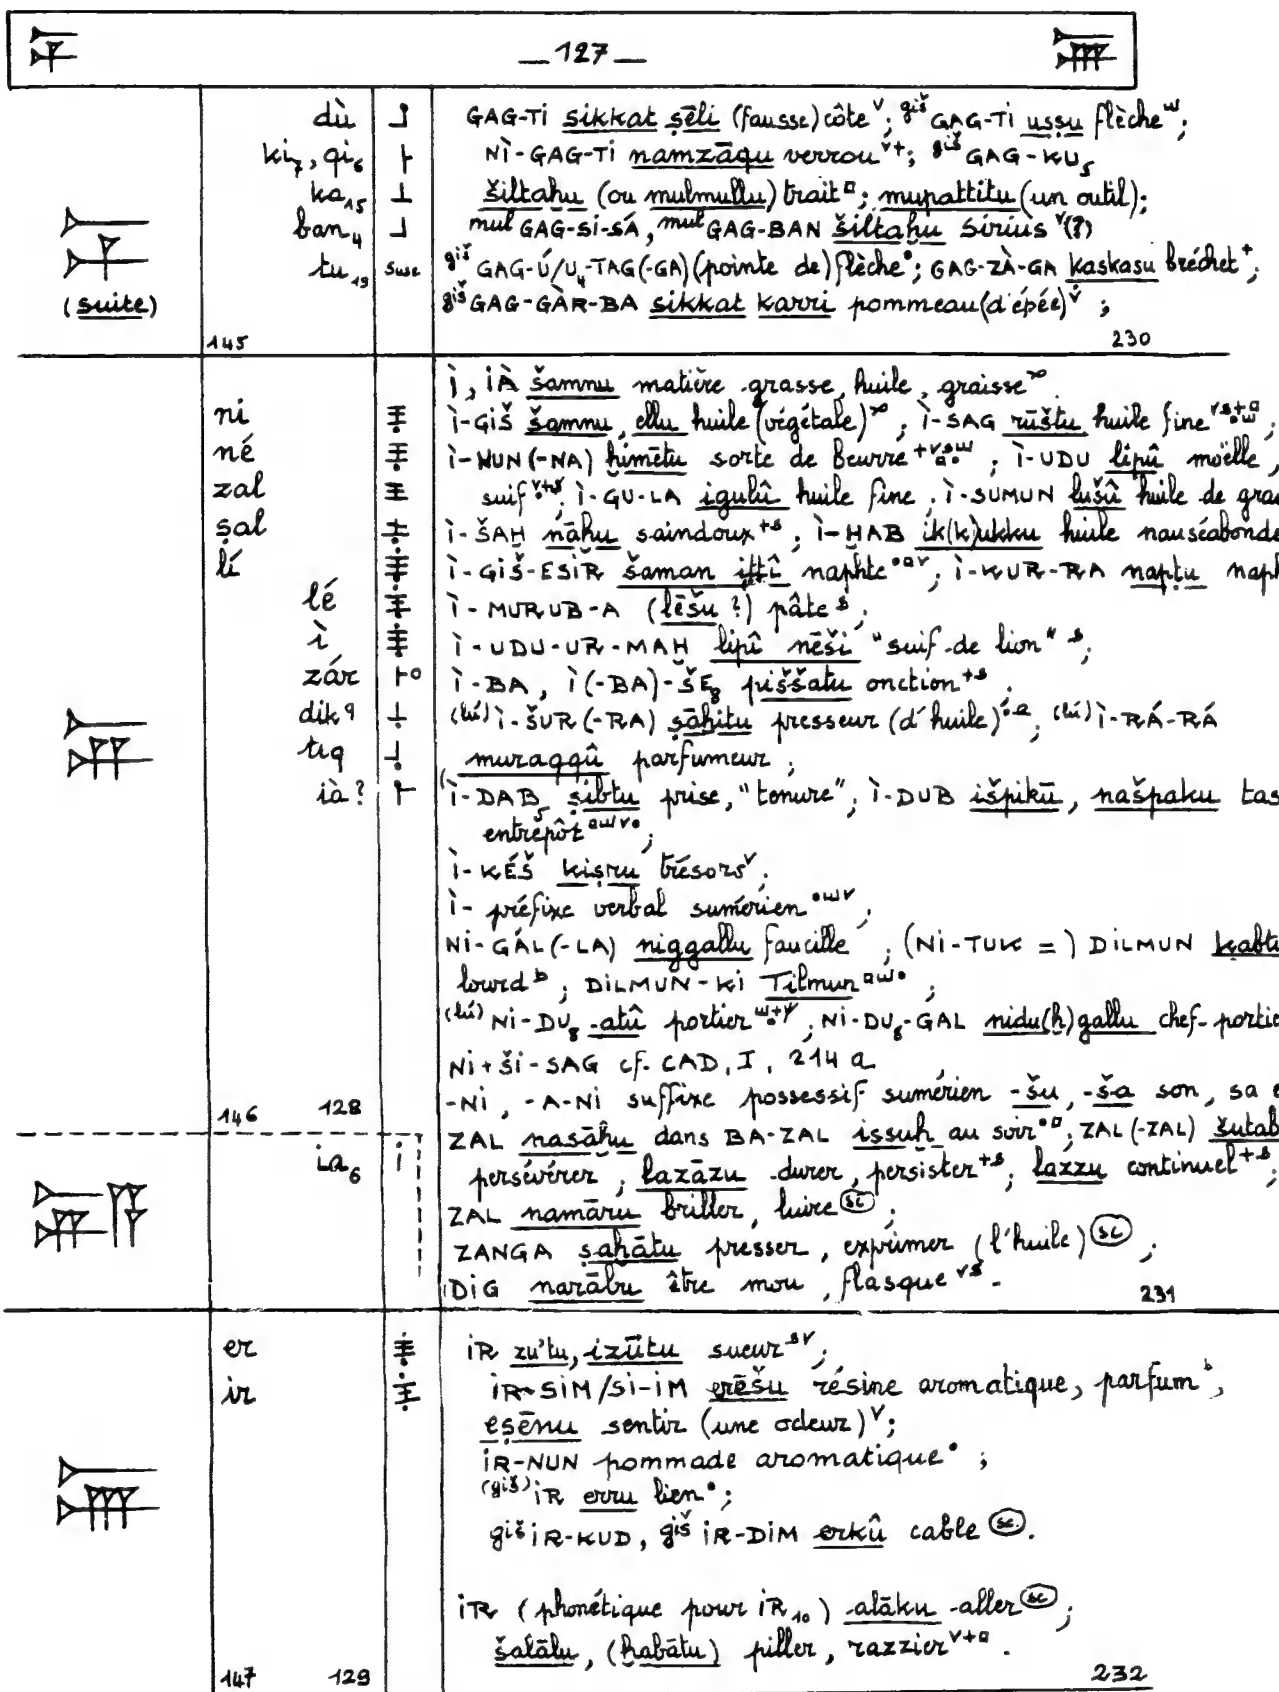 — 127 —
dù GAG-TI sikkat ṣēli (fausse) côte ᵛ; ᵍⁱˢ̌ GAG-TI uṣṣu flèche ʷ;
ki₇, qi₆ NÌ-GAG-TI namzāqu verrou ᵛ⁺; ᵍⁱˢ̌ GAG-KU₅
ka₁₅ šiltaḫu (ou mulmullu) trait ᵃ; mupattitu (un outil);
ban₄ ᵐᵘˡ GAG-SI-SÁ, ᵐᵘˡ GAG-BAN šiltaḫu Sirius ᵛ(?)
tu₁₉ suse ᵍⁱˢ̌ GAG-Ú/U₄-TAG(-GA) (pointe de) flèche •; GAG-ZÀ-GA kaskasu bréchet ⁺;
(suite) ᵍⁱˢ̌ GAG-GÀR-BA sikkat karri pommeau (d'épée) ᵛ;
145 230
Ì, IÀ šamnu matière grasse, huile, graisse
ni Ì-GIŠ šamnu, ellu huile (végétale); Ì-SAG rūštu huile fine;
né Ì-NUN(-NA) ḫimētu sorte de beurre; Ì-UDU lipû moëlle,
zal suif; Ì-GU-LA igulû huile fine, Ì-SUMUN lušû huile de
ṣal Ì-ŠAḪ nāḫu saindoux ⁺ˢ; Ì-ḪAB ik(k)ukku huile nauséabonde
lí Ì-GIŠ-ESIR šaman iṭṭî naphte; Ì-KUR-RA napṭu
lé Ì-MURUB-A (lēšu ?) pâte ˢ;
ì Ì-UDU-UR-MAḪ lipî nēši "suif de lion" ˢ;
zár Ì-BA, Ì(-BA)-ŠE₈ piššatu onction ⁺ˢ.
dik⁹ ⁽ˡᵘ́⁾ Ì-ŠUR(-RA) ṣāḫitu presseur (d'huile); ⁽ˡᵘ́⁾ Ì-RÁ-RÁ
tiq muraqqû parfumeur;
ià? Ì-DAB₅ ṣibtu prise, "tenure"; Ì-DUB išpikū, našpaku
entrepôt;
Ì-KÉŠ kiṣru trésors ᵛ.
Ì- préfixe verbal sumérien,
NI-GÁL(-LA) niggallu faucille; (NI-TUK =) DILMUN
lourd ᵇ; DILMUN-KI Tilmun;
⁽ˡᵘ́⁾ NI-DU₈ atû portier; NI-DU₈-GAL nidu(ḫ)gallu chef-
NI+ŠI-SAG cf. CAD, I, 214 a
-NI, -A-NI suffixe possessif sumérien -šu, -ša son, sa
146 128
ZAL nasāḫu dans BA-ZAL issuḫ au soir; ZAL(-ZAL)
ia₆ persévérer; lazāzu durer, persister ⁺ˢ; lazzu continuel ⁺ˢ;
ZAL namāru briller, luire (sc);
ZANGA ṣaḫātu presser, exprimer (l'huile) (sc);
DIG narābu être mou, flasque ᵛˢ.
231
er IR zu'tu, izūtu sueur ˢᵛ;
ir IR-SIM/SI-IM erēšu résine aromatique, parfum ᵇ,
eṣēnu sentir (une odeur) ᵛ;
IR-NUN pommade aromatique •;
⁽ᵍⁱˢ̌⁾ IR erru lien •;
ᵍⁱˢ̌ IR-KUD, ᵍⁱˢ̌ IR-DIM erkû cable (sc).
IR (phonétique pour IR₁₀) alāku aller (sc);
šalālu, (ḫabātu) piller, razzier ᵛ⁺ᵃ.
147 129 232